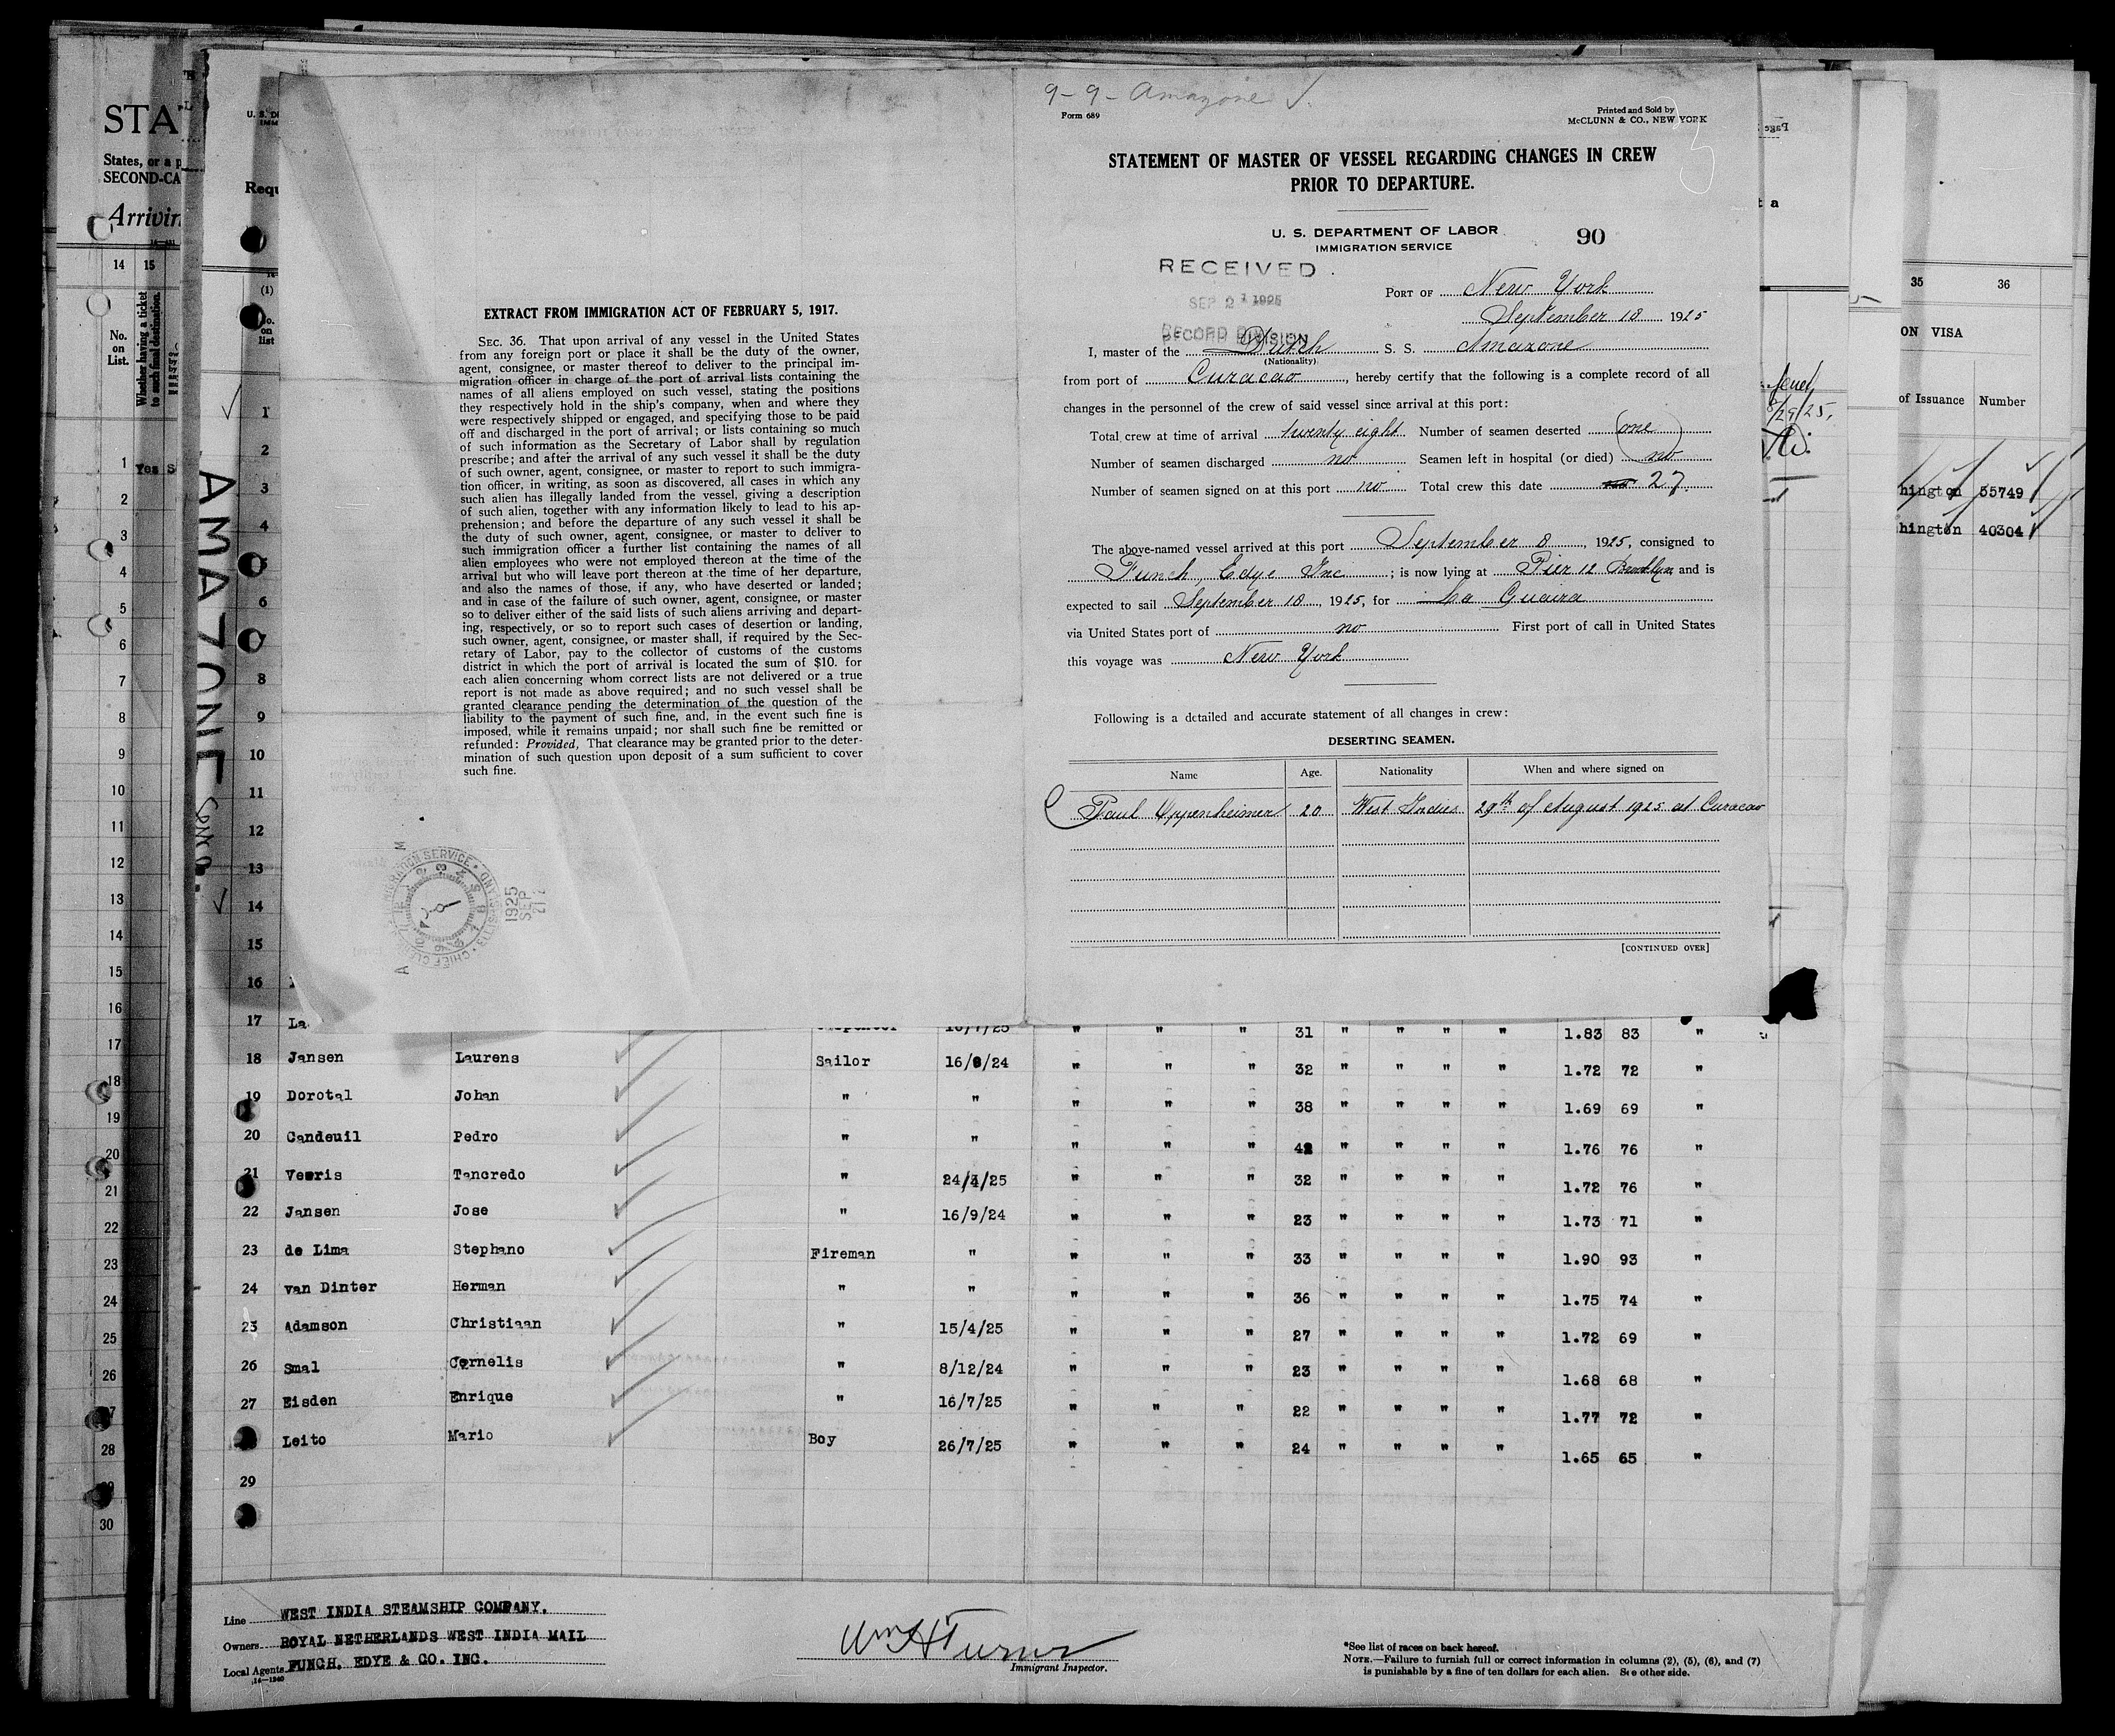 9-9- Amazone
Form 689
Printed and Sold by
McCLUNN & CO., NEW YORK
STATEMENT OF MASTER OF VESSEL REGARDING CHANGES IN CREW
PRIOR TO DEPARTURE.
U. S. DEPARTMENT OF LABOR
IMMIGRATION SERVICE
90
RECEIVED
SEP 21 1925
RECORD DIVISION
PORT OF New York
September 18 1925
I, master of the Dutch S. S. Amazone
(Nationality)
from port of Curacao, hereby certify that the following is a complete record of all
changes in the personnel of the crew of said vessel since arrival at this port:
Total crew at time of arrival twenty eight Number of seamen deserted one
Number of seamen discharged no Seamen left in hospital (or died) no
Number of seamen signed on at this port no Total crew this date 27.
The above-named vessel arrived at this port September 8, 1925, consigned to
Funch, Edye Inc; is now lying at Pier 12 Brooklyn and is
expected to sail September 18, 1925, for La Guaira
via United States port of no First port of call in United States
this voyage was New York
Following is a detailed and accurate statement of all changes in crew:
DESERTING SEAMEN.
Name Age. Nationality When and where signed on
Paul Oppenheimer 20 West Indies 29th of August 1925 at Curacao
[CONTINUED OVER]
EXTRACT FROM IMMIGRATION ACT OF FEBRUARY 5, 1917.
SEC. 36. That upon arrival of any vessel in the United States
from any foreign port or place it shall be the duty of the owner,
agent, consignee, or master thereof to deliver to the principal im-
migration officer in charge of the port of arrival lists containing the
names of all aliens employed on such vessel, stating the positions
they respectively hold in the ship's company, when and where they
were respectively shipped or engaged, and specifying those to be paid
off and discharged in the port of arrival; or lists containing so much
of such information as the Secretary of Labor shall by regulation
prescribe; and after the arrival of any such vessel it shall be the duty
of such owner, agent, consignee, or master to report to such immigra-
tion officer, in writing, as soon as discovered, all cases in which any
such alien has illegally landed from the vessel, giving a description
of such alien, together with any information likely to lead to his ap-
prehension; and before the departure of any such vessel it shall be
the duty of such owner, agent, consignee, or master to deliver to
such immigration officer a further list containing the names of all
alien employees who were not employed thereon at the time of the
arrival but who will leave port thereon at the time of her departure,
and also the names of those, if any, who have deserted or landed;
and in case of the failure of such owner, agent, consignee, or master
so to deliver either of the said lists of such aliens arriving and depart-
ing, respectively, or so to report such cases of desertion or landing,
such owner, agent, consignee, or master shall, if required by the Sec-
retary of Labor, pay to the collector of customs of the customs
district in which the port of arrival is located the sum of $10. for
each alien concerning whom correct lists are not delivered or a true
report is not made as above required; and no such vessel shall be
granted clearance pending the determination of the question of the
liability to the payment of such fine, and, in the event such fine is
imposed, while it remains unpaid; nor shall such fine be remitted or
refunded: Provided, That clearance may be granted prior to the deter-
mination of such question upon deposit of a sum sufficient to cover
such fine.
1925
SEP
21
AMAZONE
STA
States, or a p
SECOND-CA
Arrivin
14 15
No.
on
List.
Whether having a ticket
to such final destination.
1 Yes S
35 36
ON VISA
of Issuance Number
hington 55749
hington 40304
17 La 31 " " " " 1.83 83 "
18 Jansen Laurens Sailor 16/8/24 " " " 32 " " " " 1.72 72 "
19 Dorotal Johan " " " " " 38 " " " " 1.69 69 "
20 Candeuil Pedro " " " " " 42 " " " " 1.76 76 "
21 Veeris Tancredo " 24/4/25 " " " 32 " " " " 1.72 76 "
22 Jansen Jose " 16/9/24 " " " 23 " " " " 1.73 71 "
23 de Lima Stephano Fireman " " " " 33 " " " " 1.90 93 "
24 van Dinter Herman " " " " " 36 " " " " 1.75 74 "
25 Adamson Christiaan " 15/4/25 " " " 27 " " " " 1.72 69 "
26 Smal Cornelis " 8/12/24 " " " 23 " " " " 1.68 68 "
27 Eisden Enrique " 16/7/25 " " " 22 " " " " 1.77 72 "
Leito Mario Boy 26/7/25 " " " 24 " " " " 1.65 65 "
29
Line WEST INDIA STEAMSHIP COMPANY.
Owners ROYAL NETHERLANDS WEST INDIA MAIL
Local Agents FUNCH, EDYE & CO. INC.
14-1240
Wm H Turner
Immigrant Inspector.
*See list of races on back hereof.
NOTE.—Failure to furnish full or correct information in columns (2), (5), (6), and (7)
is punishable by a fine of ten dollars for each alien. See other side.